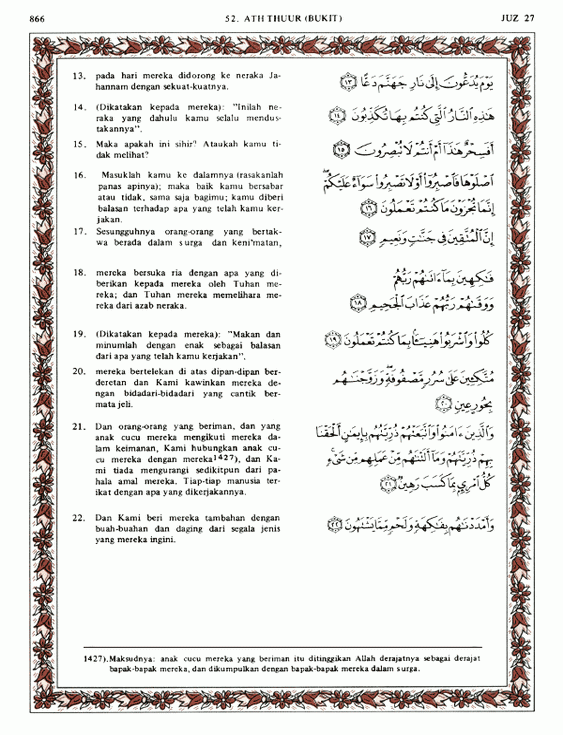 866 52. ATH THUUR (BUKIT) JUZ 27
13. pada hari mereka didorong ke neraka Ja-
hannam dengan sekuat-kuatnya.
14. (Dikatakan kepada mereka): "Inilah ne-
raka yang dahulu kamu selalu mendus-
takannya".
15. Maka apakah ini sihir? Ataukah kamu ti-
dak melihat?
16. Masuklah kamu ke dalamnya (rasakanlah
panas apinya); maka baik kamu bersabar
atau tidak, sama saja bagimu; kamu diberi
balasan terhadap apa yang telah kamu ker-
jakan.
17. Sesungguhnya orang-orang yang bertak-
wa berada dalam surga dan keni'matan,
18. mereka bersuka ria dengan apa yang di-
berikan kepada mereka oleh Tuhan me-
reka; dan Tuhan mereka memelihara me-
reka dari azab neraka.
19. (Dikatakan kepada mereka): "Makan dan
minumlah dengan enak sebagai balasan
dari apa yang telah kamu kerjakan".
20. mereka bertelekan di atas dipan-dipan ber-
deretan dan Kami kawinkan mereka de-
ngan bidadari-bidadari yang cantik ber-
mata jeli.
21. Dan orang-orang yang beriman, dan yang
anak cucu mereka mengikuti mereka da-
lam keimanan, Kami hubungkan anak cu-
cu mereka dengan mereka1427), dan Ka-
mi tiada mengurangi sedikitpun dari pa-
hala amal mereka. Tiap-tiap manusia ter-
ikat dengan apa yang dikerjakannya.
22. Dan Kami beri mereka tambahan dengan
buah-buahan dan daging dari segala jenis
yang mereka ingini.
يَوْمَ يُدَعُّونَ إِلَىٰ نَارِ جَهَنَّمَ دَعًّا ۝١٣
هَٰذِهِ ٱلنَّارُ ٱلَّتِى كُنتُم بِهَا تُكَذِّبُونَ ۝١٤
أَفَسِحْرٌ هَٰذَآ أَمْ أَنتُمْ لَا تُبْصِرُونَ ۝١٥
ٱصْلَوْهَا فَٱصْبِرُوٓا۟ أَوْ لَا تَصْبِرُوا۟ سَوَآءٌ عَلَيْكُمْ ۖ
إِنَّمَا تُجْزَوْنَ مَا كُنتُمْ تَعْمَلُونَ ۝١٦
إِنَّ ٱلْمُتَّقِينَ فِى جَنَّٰتٍ وَنَعِيمٍ ۝١٧
فَٰكِهِينَ بِمَآ ءَاتَىٰهُمْ رَبُّهُمْ
وَوَقَىٰهُمْ رَبُّهُمْ عَذَابَ ٱلْجَحِيمِ ۝١٨
كُلُوا۟ وَٱشْرَبُوا۟ هَنِيٓـًٔۢا بِمَا كُنتُمْ تَعْمَلُونَ ۝١٩
مُتَّكِـِٔينَ عَلَىٰ سُرُرٍ مَّصْفُوفَةٍ ۖ وَزَوَّجْنَٰهُم
بِحُورٍ عِينٍ ۝٢٠
وَٱلَّذِينَ ءَامَنُوا۟ وَٱتَّبَعَتْهُمْ ذُرِّيَّتُهُم بِإِيمَٰنٍ أَلْحَقْنَا
بِهِمْ ذُرِّيَّتَهُمْ وَمَآ أَلَتْنَٰهُم مِّنْ عَمَلِهِم مِّن شَىْءٍ ۚ
كُلُّ ٱمْرِئٍۭ بِمَا كَسَبَ رَهِينٌ ۝٢١
وَأَمْدَدْنَٰهُم بِفَٰكِهَةٍ وَلَحْمٍ مِّمَّا يَشْتَهُونَ ۝٢٢
1427). Maksudnya: anak cucu mereka yang beriman itu ditinggikan Allah derajatnya sebagai derajat
bapak-bapak mereka, dan dikumpulkan dengan bapak-bapak mereka dalam surga.